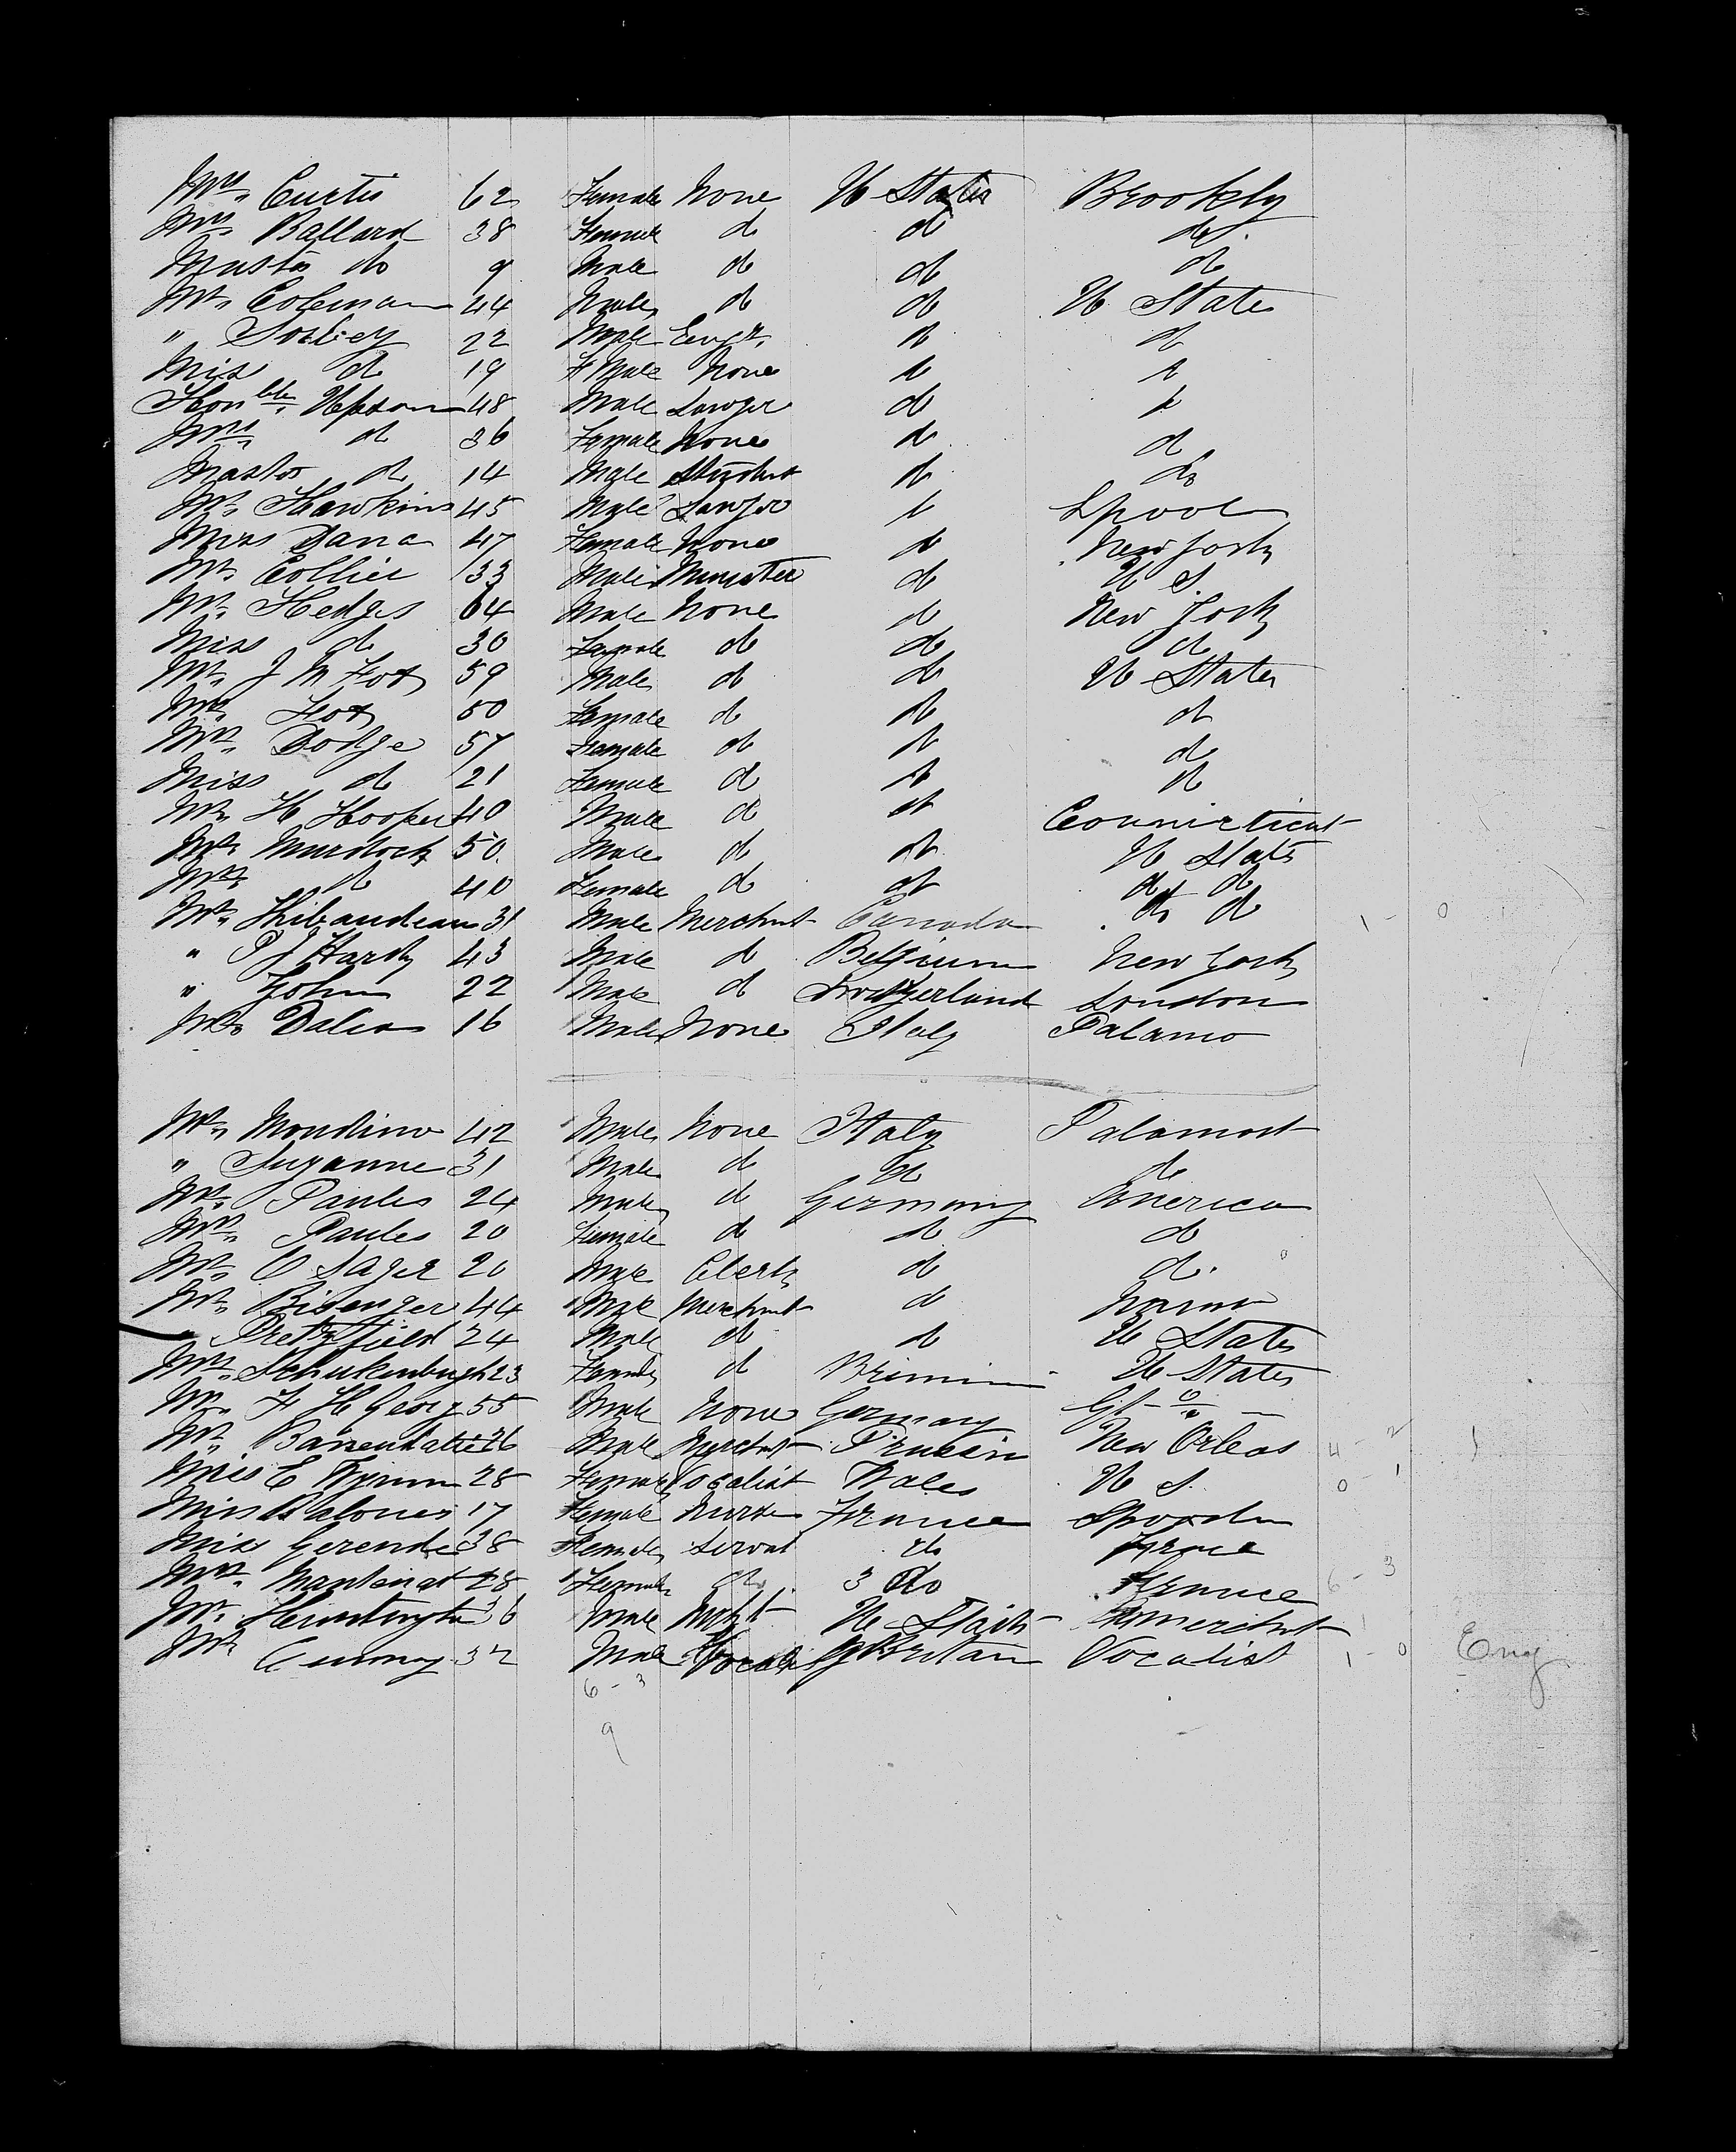 Mrs Curtis 62 Female None U States Brookly
Mrs Ballard 38 Female do do do
Master do 9 Male do do do
Mr Coleman 44 Male do do U States
" Sorley 22 Male Engr. do do
Miss do 19 F Male None do do
Honble Upson 48 Male Lawyer do do
Mrs do 36 Female None do do
Master do 14 Male Student do do
Mr Hawkins 45 Male Lawyer do Lpool
Miss Dana 47 Female None do New York
Mr Collier 33 Male Minister do U S
Mr Hedges 64 Male None do New York
Miss do 30 Female do do do
Mr J M Fox 59 Male do do U States
Mrs Fox 50 Female do do do
Mrs Dodge 57 Female do do do
Miss do 21 Female do do do
Mr H Hooper 40 Male do do Connirticut
Mr Murdock 50 Male do do U Stats
Mrs do 40 Female do do do do
Mr Thibaudeau 31 Male Merchnt Canada do do 1 - 0
" P J Hardy 43 Male do Belgium New York
" John 22 Male do Switzerland London
Mr Dalia 16 Male None Italy Palamo
Mr Mondino 42 Male None Italy Palamo
" Suzanne 31 Male do do do
Mr Paules 24 Male do Germany America
Mrs Paules 20 Female do do do
Mr C Sager 20 Male Clerk do do
Mr Bisenger 44 Male Merchnt do
" Pretzfield 24 Male do do U States
Mrs Schukenburgh 23 Female do U States
Mr F H Georg 55 Male None Germany
Mr 26 Male Merchnt Prussia New Orleas 4 - 2
Miss E Wynn 28 Female Vocalist Wales U S 0 1
Miss 17 Female Nurse France
Miss Gerende 38 Female Servnt do France
Mrs Mantinat 28 Female do 3 do France 6 - 3
Mr Huntingtn 36 Male Mcht U Stats Merchnt
Mr 32 Male Vocals G Britan Vocalist 1 - 0 Eng
6 - 3
9